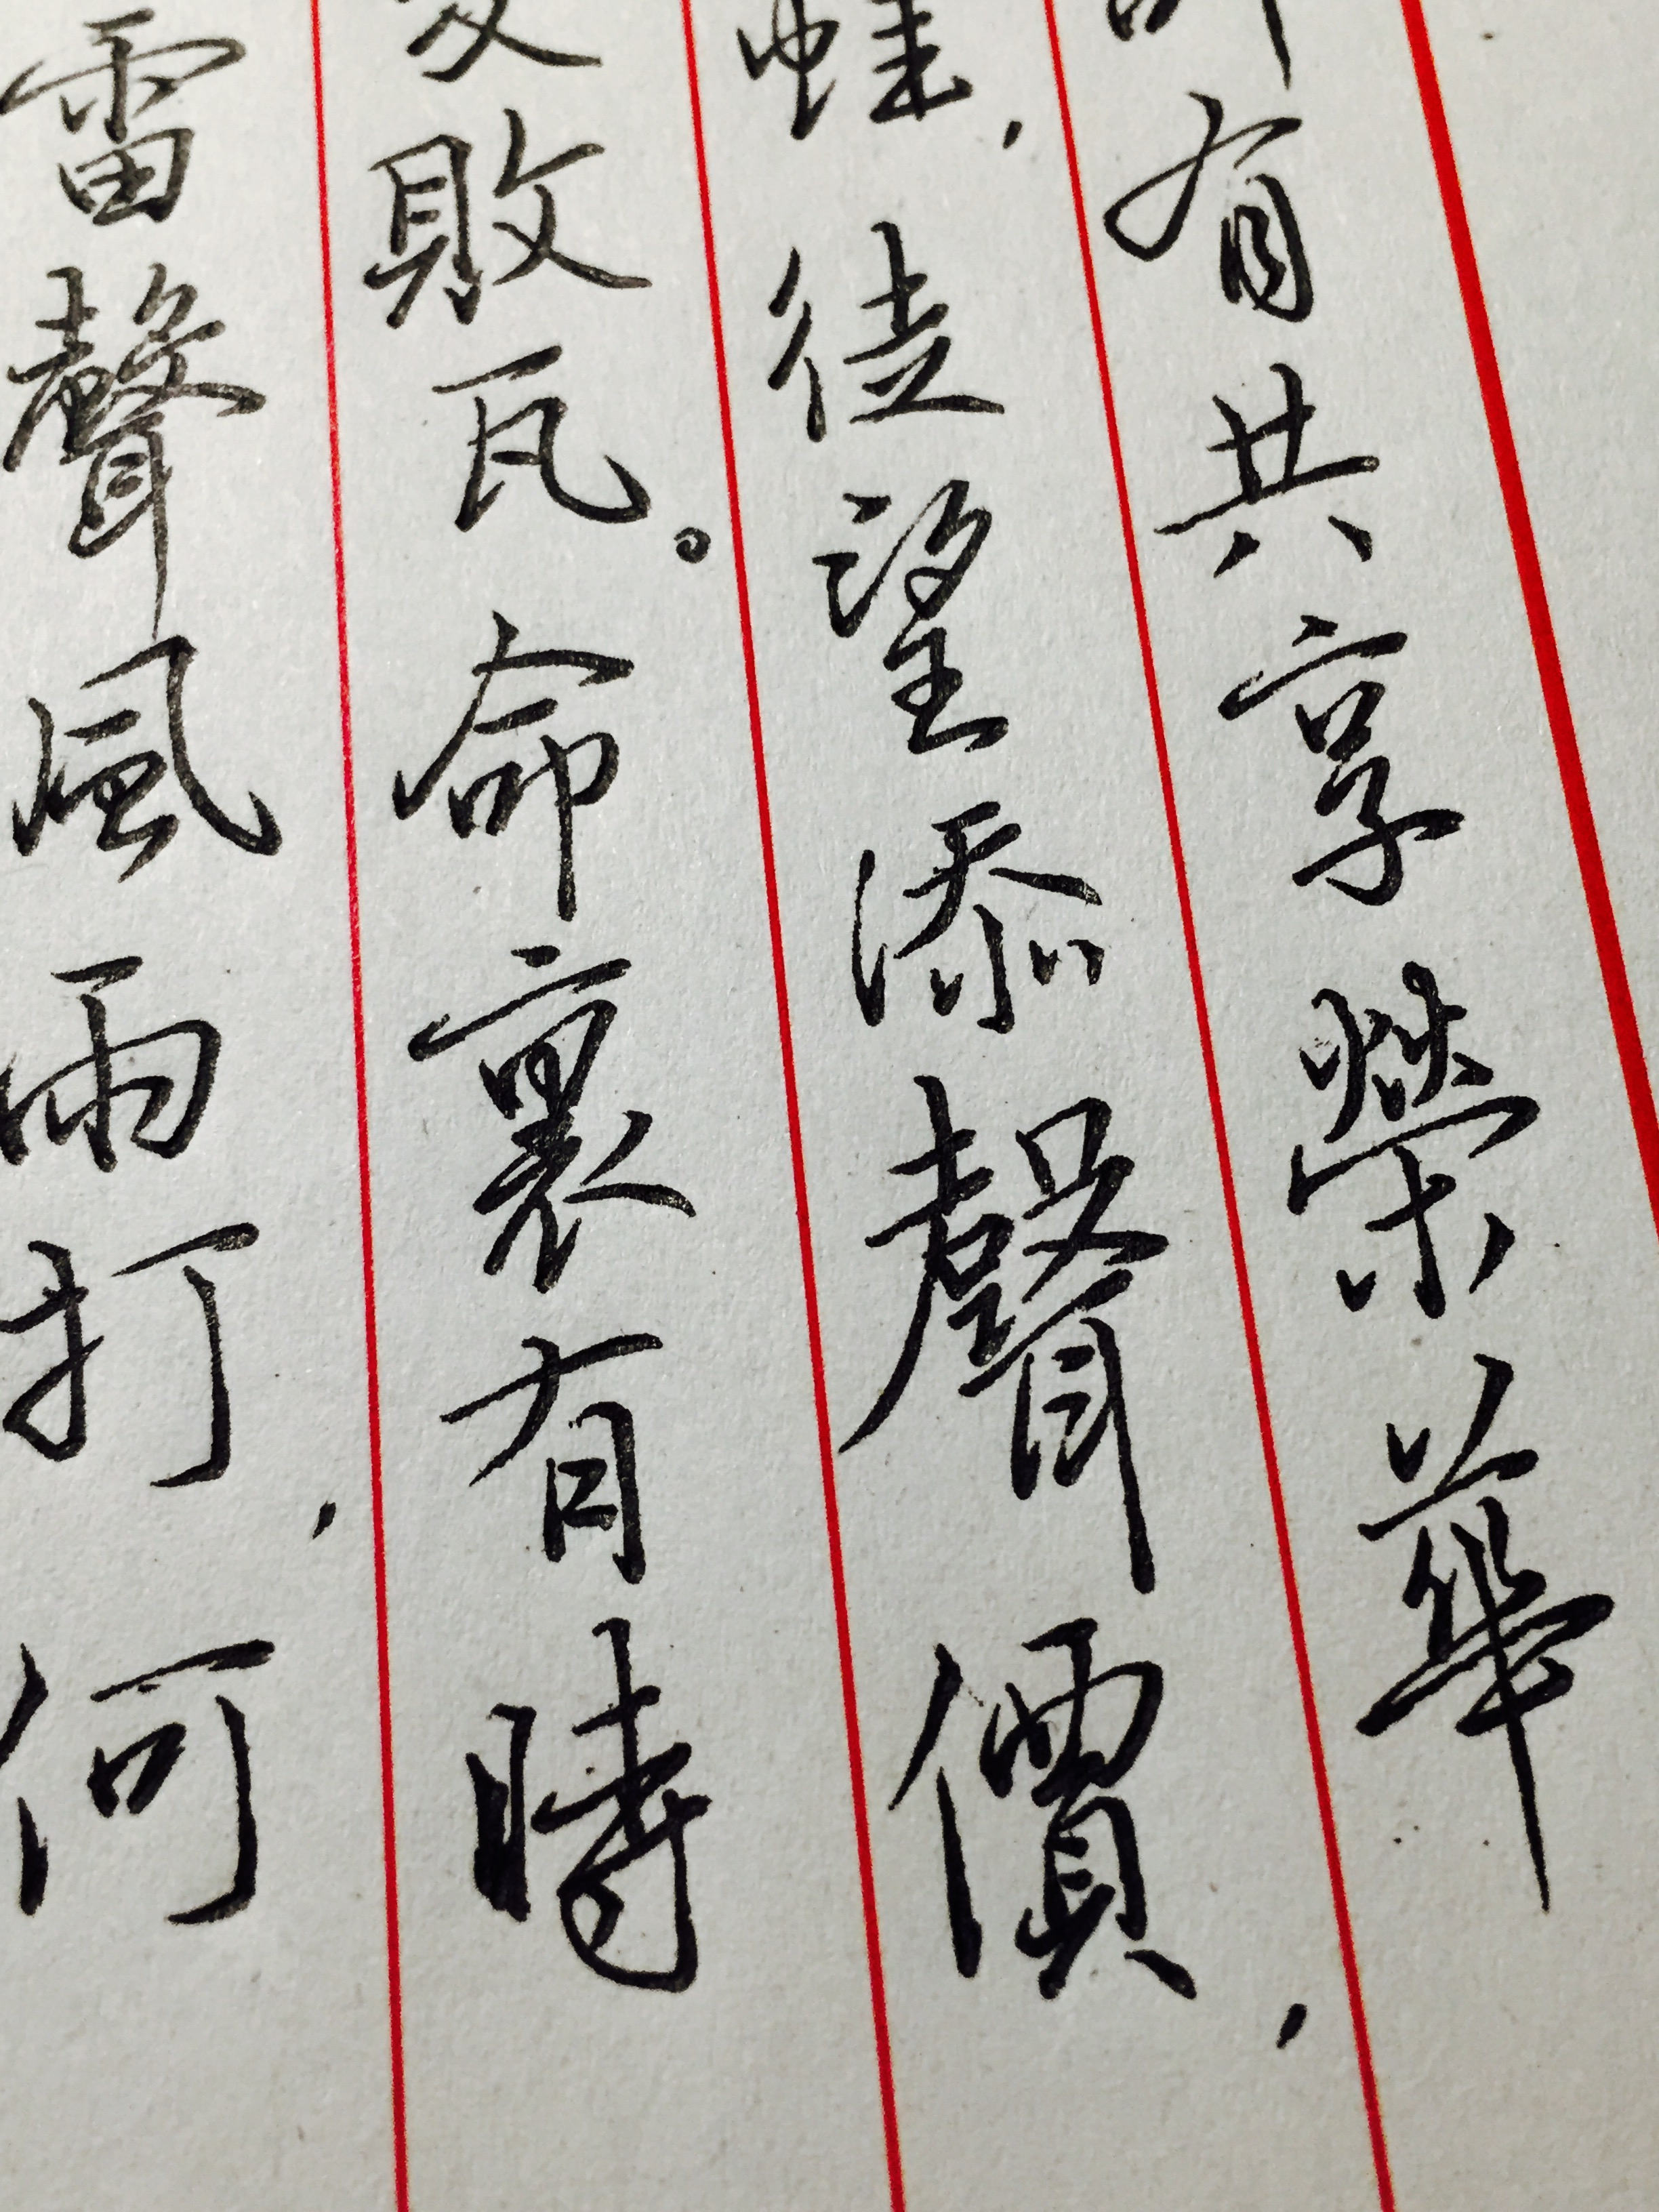 有共享榮華
蛙，徒望添聲價，
敗瓦。命裏有時
雷聲風雨打，何